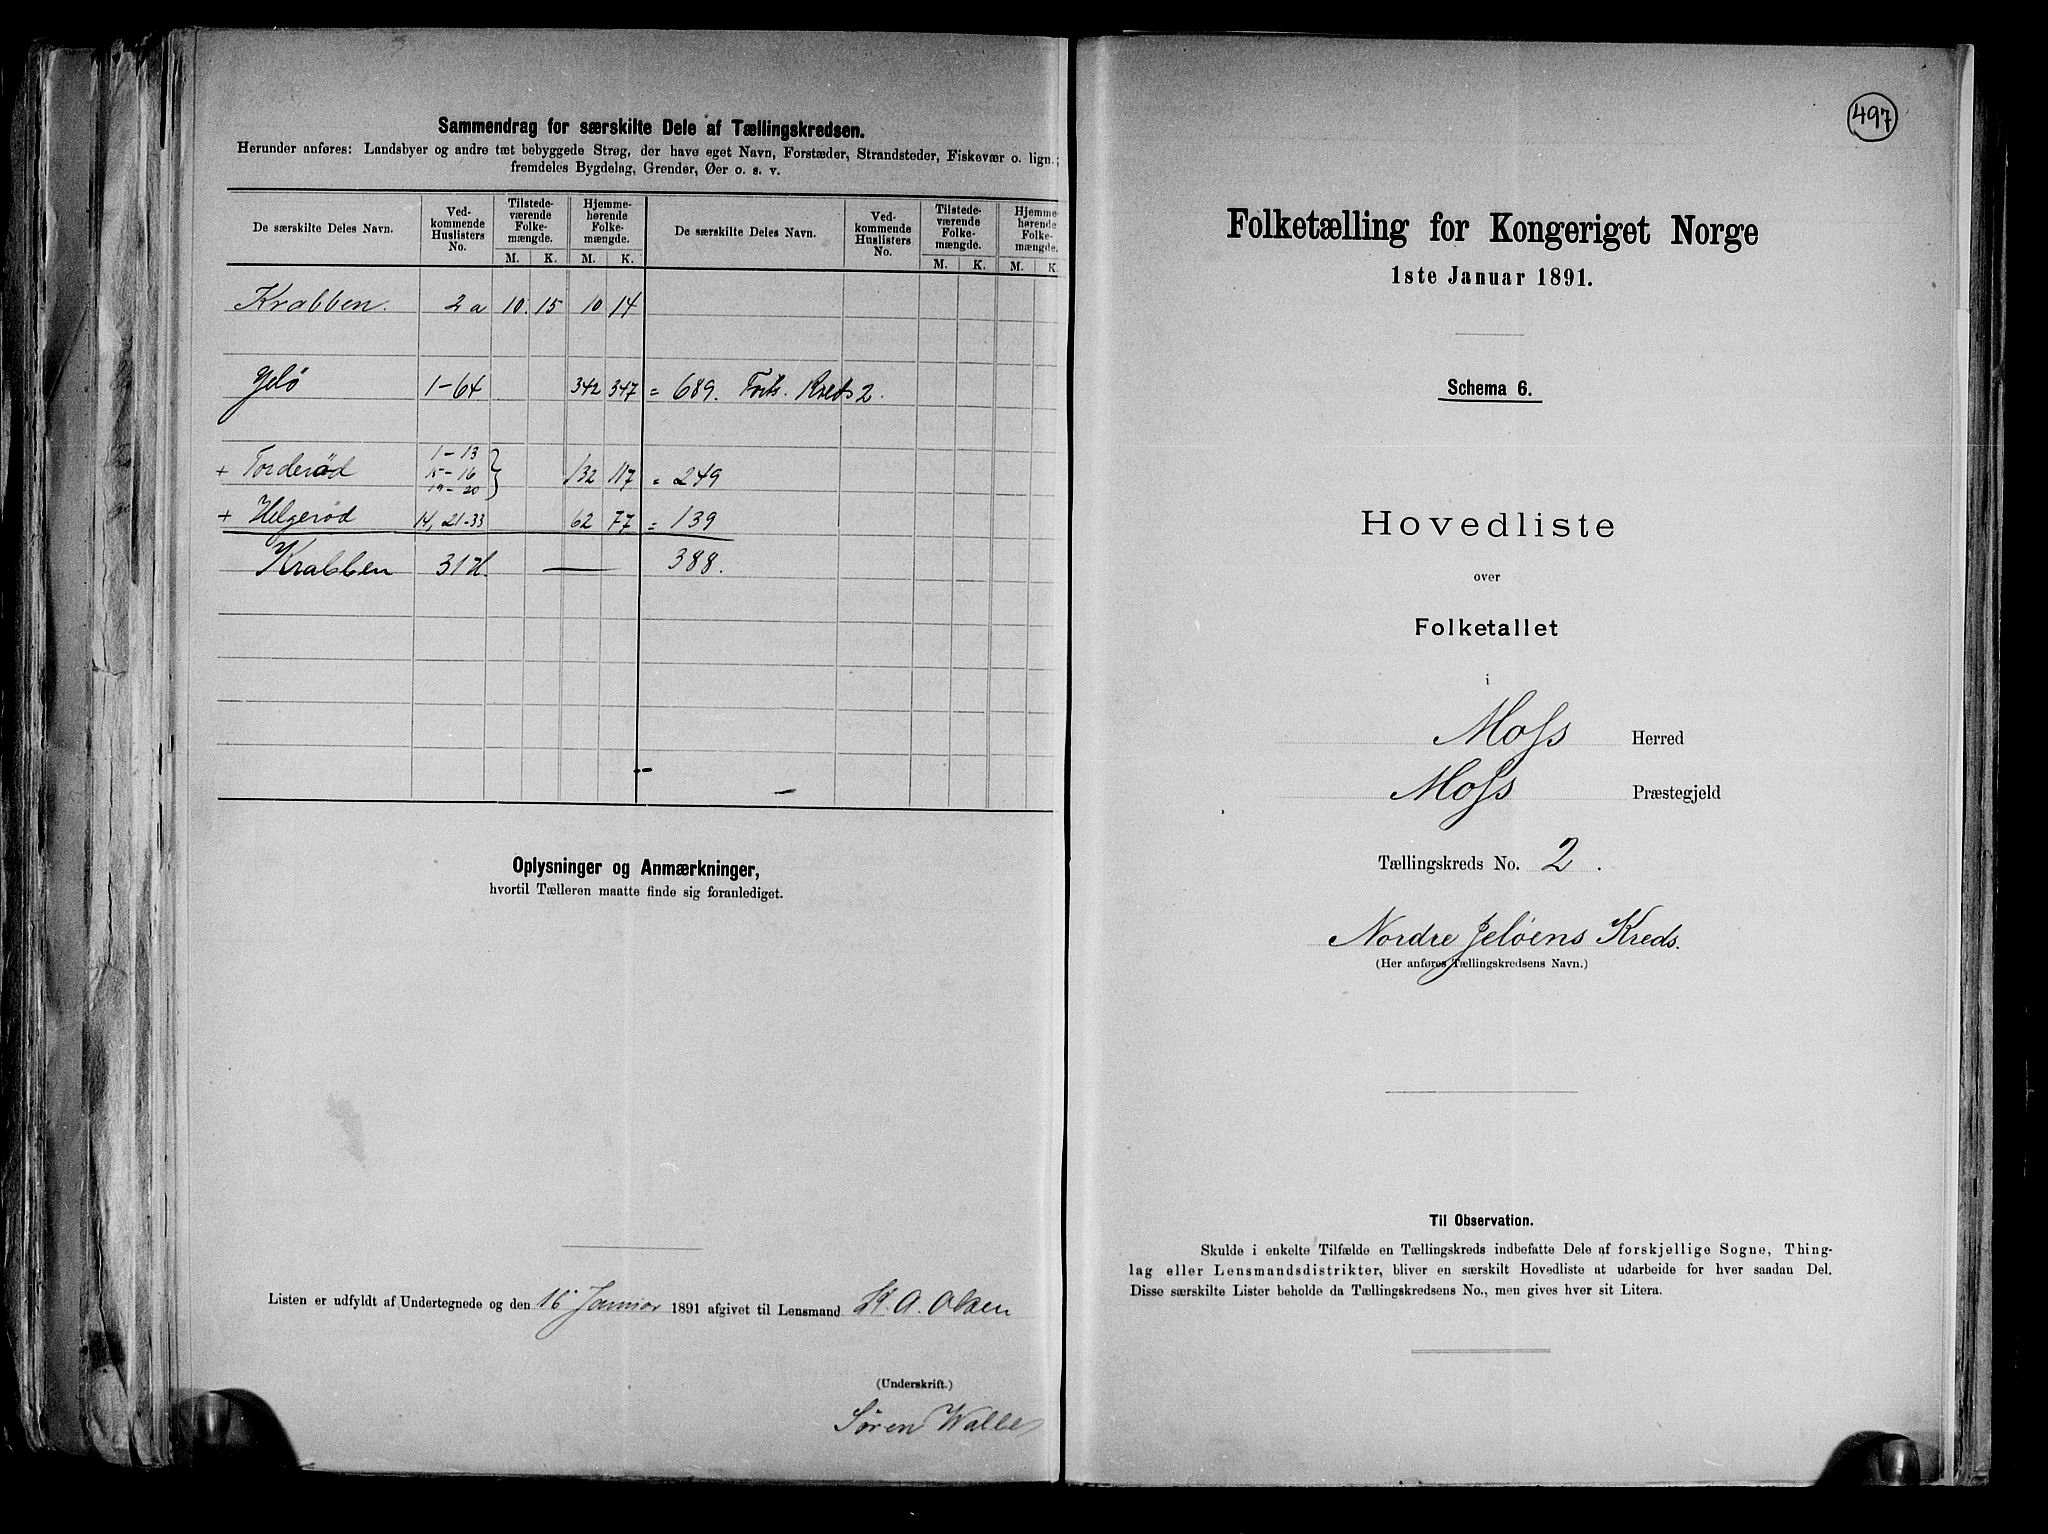 Sammendrag for særskilte Dele af Tællingskredsen.
Herunder anføres: Landsbyer og andre tæt bebyggede Strøg, der have eget Navn, Forstæder, Strandsteder, Fiskevær o. lign.;
fremdeles Bygdelag, Grender, Øer o. s. v.
De særskilte Deles Navn. Ved-kommende Huslisters No. Tilstede-værende Folke-mængde. Hjemme-hørende Folke-mængde. De særskilte Deles Navn. Ved-kommende Huslisters No. Tilstede-værende Folke-mængde. Hjemme-hørende Folke-mængde.
M. K. M. K. M. K. M. K.
Krabben. 2 a 10. 15 10 14
Jelö 1-64 342 347 = 689. Forts. Kreds 2.
+ Torderød 1-13 15-16 19-20 } 132 117 = 249
+ Helgerød 14, 21-33 62 77 = 139
Krabben 31 H. — 388.
Oplysninger og Anmærkninger,
hvortil Tælleren maatte finde sig foranlediget.
Listen er udfyldt af Undertegnede og den 16 Januar 1891 afgivet til Lensmand H. A. Olsen
(Underskrift.)
Søren Walle
497
Folketælling for Kongeriget Norge
1ste Januar 1891.
Schema 6.
Hovedliste
over
Folketallet
i
Moss Herred
Moss Præstegjeld
Tællingskreds No. 2.
Nordre Jeløens Kreds.
(Her anføres Tællingskredsens Navn.)
Til Observation.
Skulde i enkelte Tilfælde en Tællingskreds indbefatte Dele af forskjellige Sogne, Thing-
lag eller Lensmandsdistrikter, bliver en særskilt Hovedliste at udarbeide for hver saadan Del.
Disse særskilte Lister beholde da Tællingskredsens No., men gives hver sit Litera.